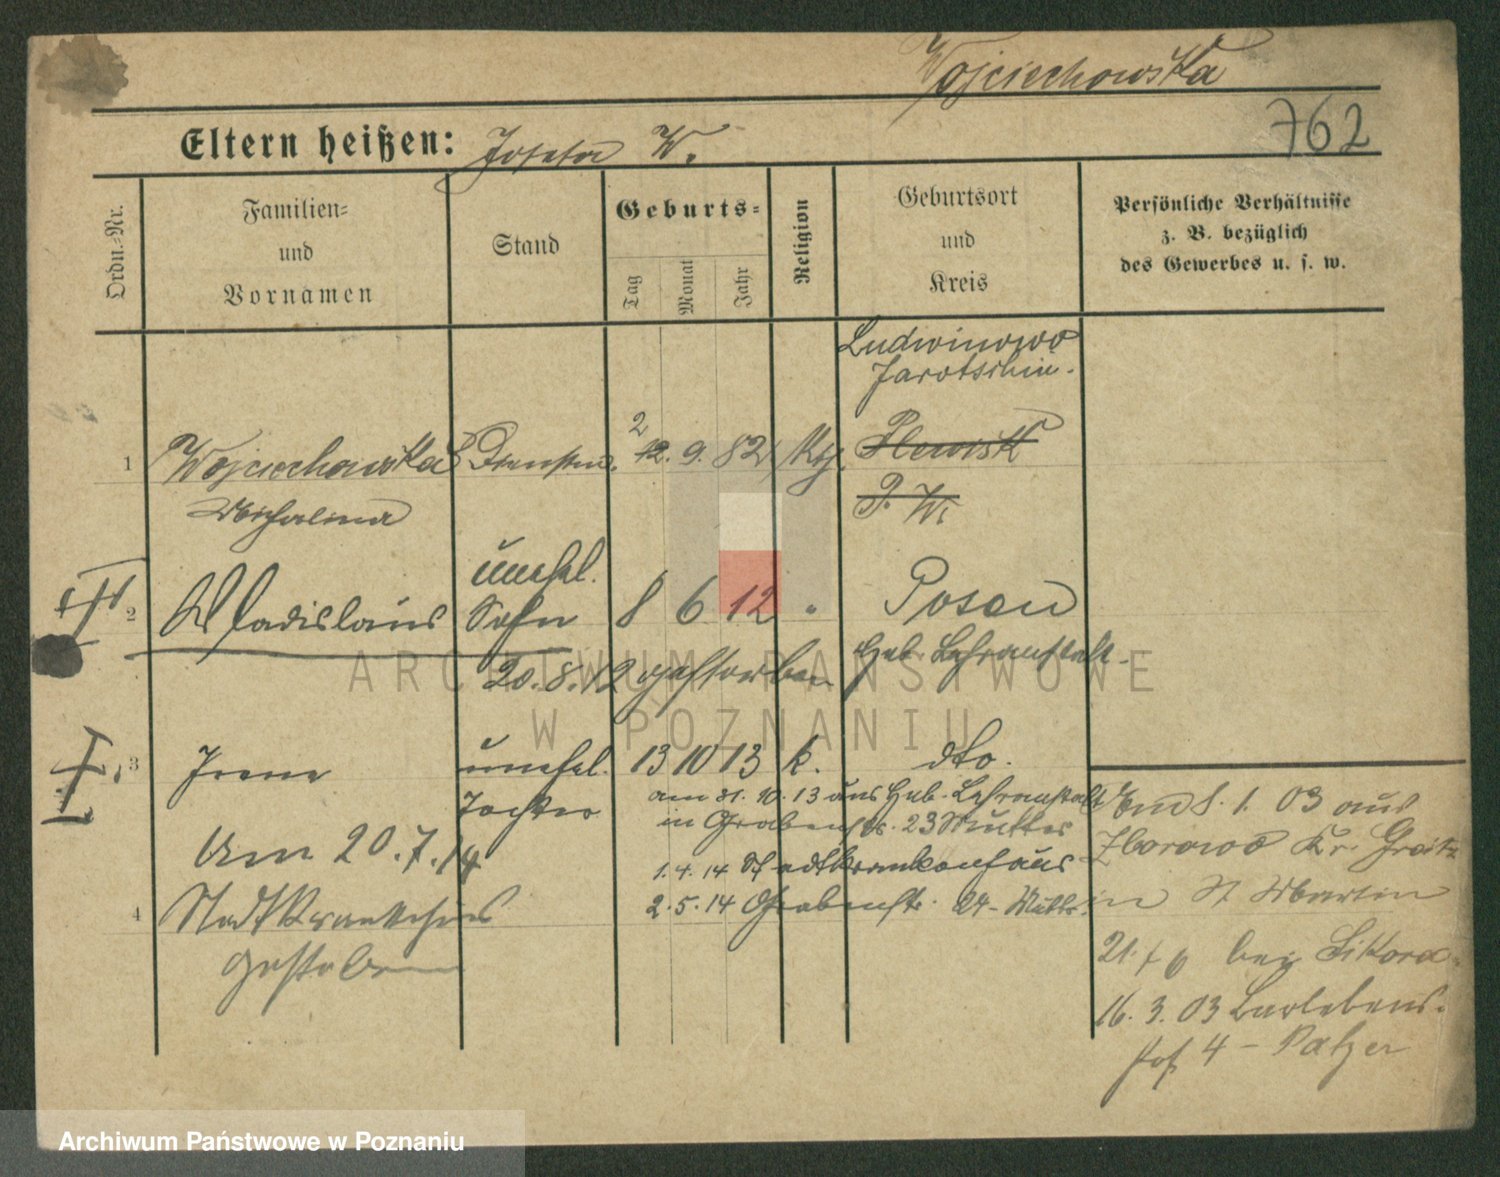 Wojciechowska
762
Eltern heißen: Josefa W.
Ordn.-Nr.
Familien-
und
Vornamen
Stand
Geburts-
Tag
Monat
Jahr
Religion
Geburtsort
und
Kreis
Persönliche Verhältnisse
z. B. bezüglich
des Gewerbes u. s. w.
Ludwinowo
Jarotschin.
2
1 Wojciechowska 12. 9. 82 Plewisk
Michalina P. W.
unehel.
2 Wladislaus Sohn 8 6 12 " Posen
Heb. Lehranstalt.
20. 8. 12 gestorben
3 Irene unehel. 13 10 13 k. dto.
Tochter
am 31. 10. 13 aus Heb. Lehranstalt
in Grabenstr. 23 Mutter
Am 20. 7. 14
1. 4. 14 Stadtkrankenhaus
4 Stadtkrankenhaus
2. 5. 14 Grabenstr. 24 -
gestorben
8. 1. 03 aus
Zborowo Kr. Grätz
in St Martin
21. bei Sikora
16. 3. 03
hof 4 - Balzer
ARCHIWUM PAŃSTWOWE
W POZNANIU
Archiwum Państwowe w Poznaniu